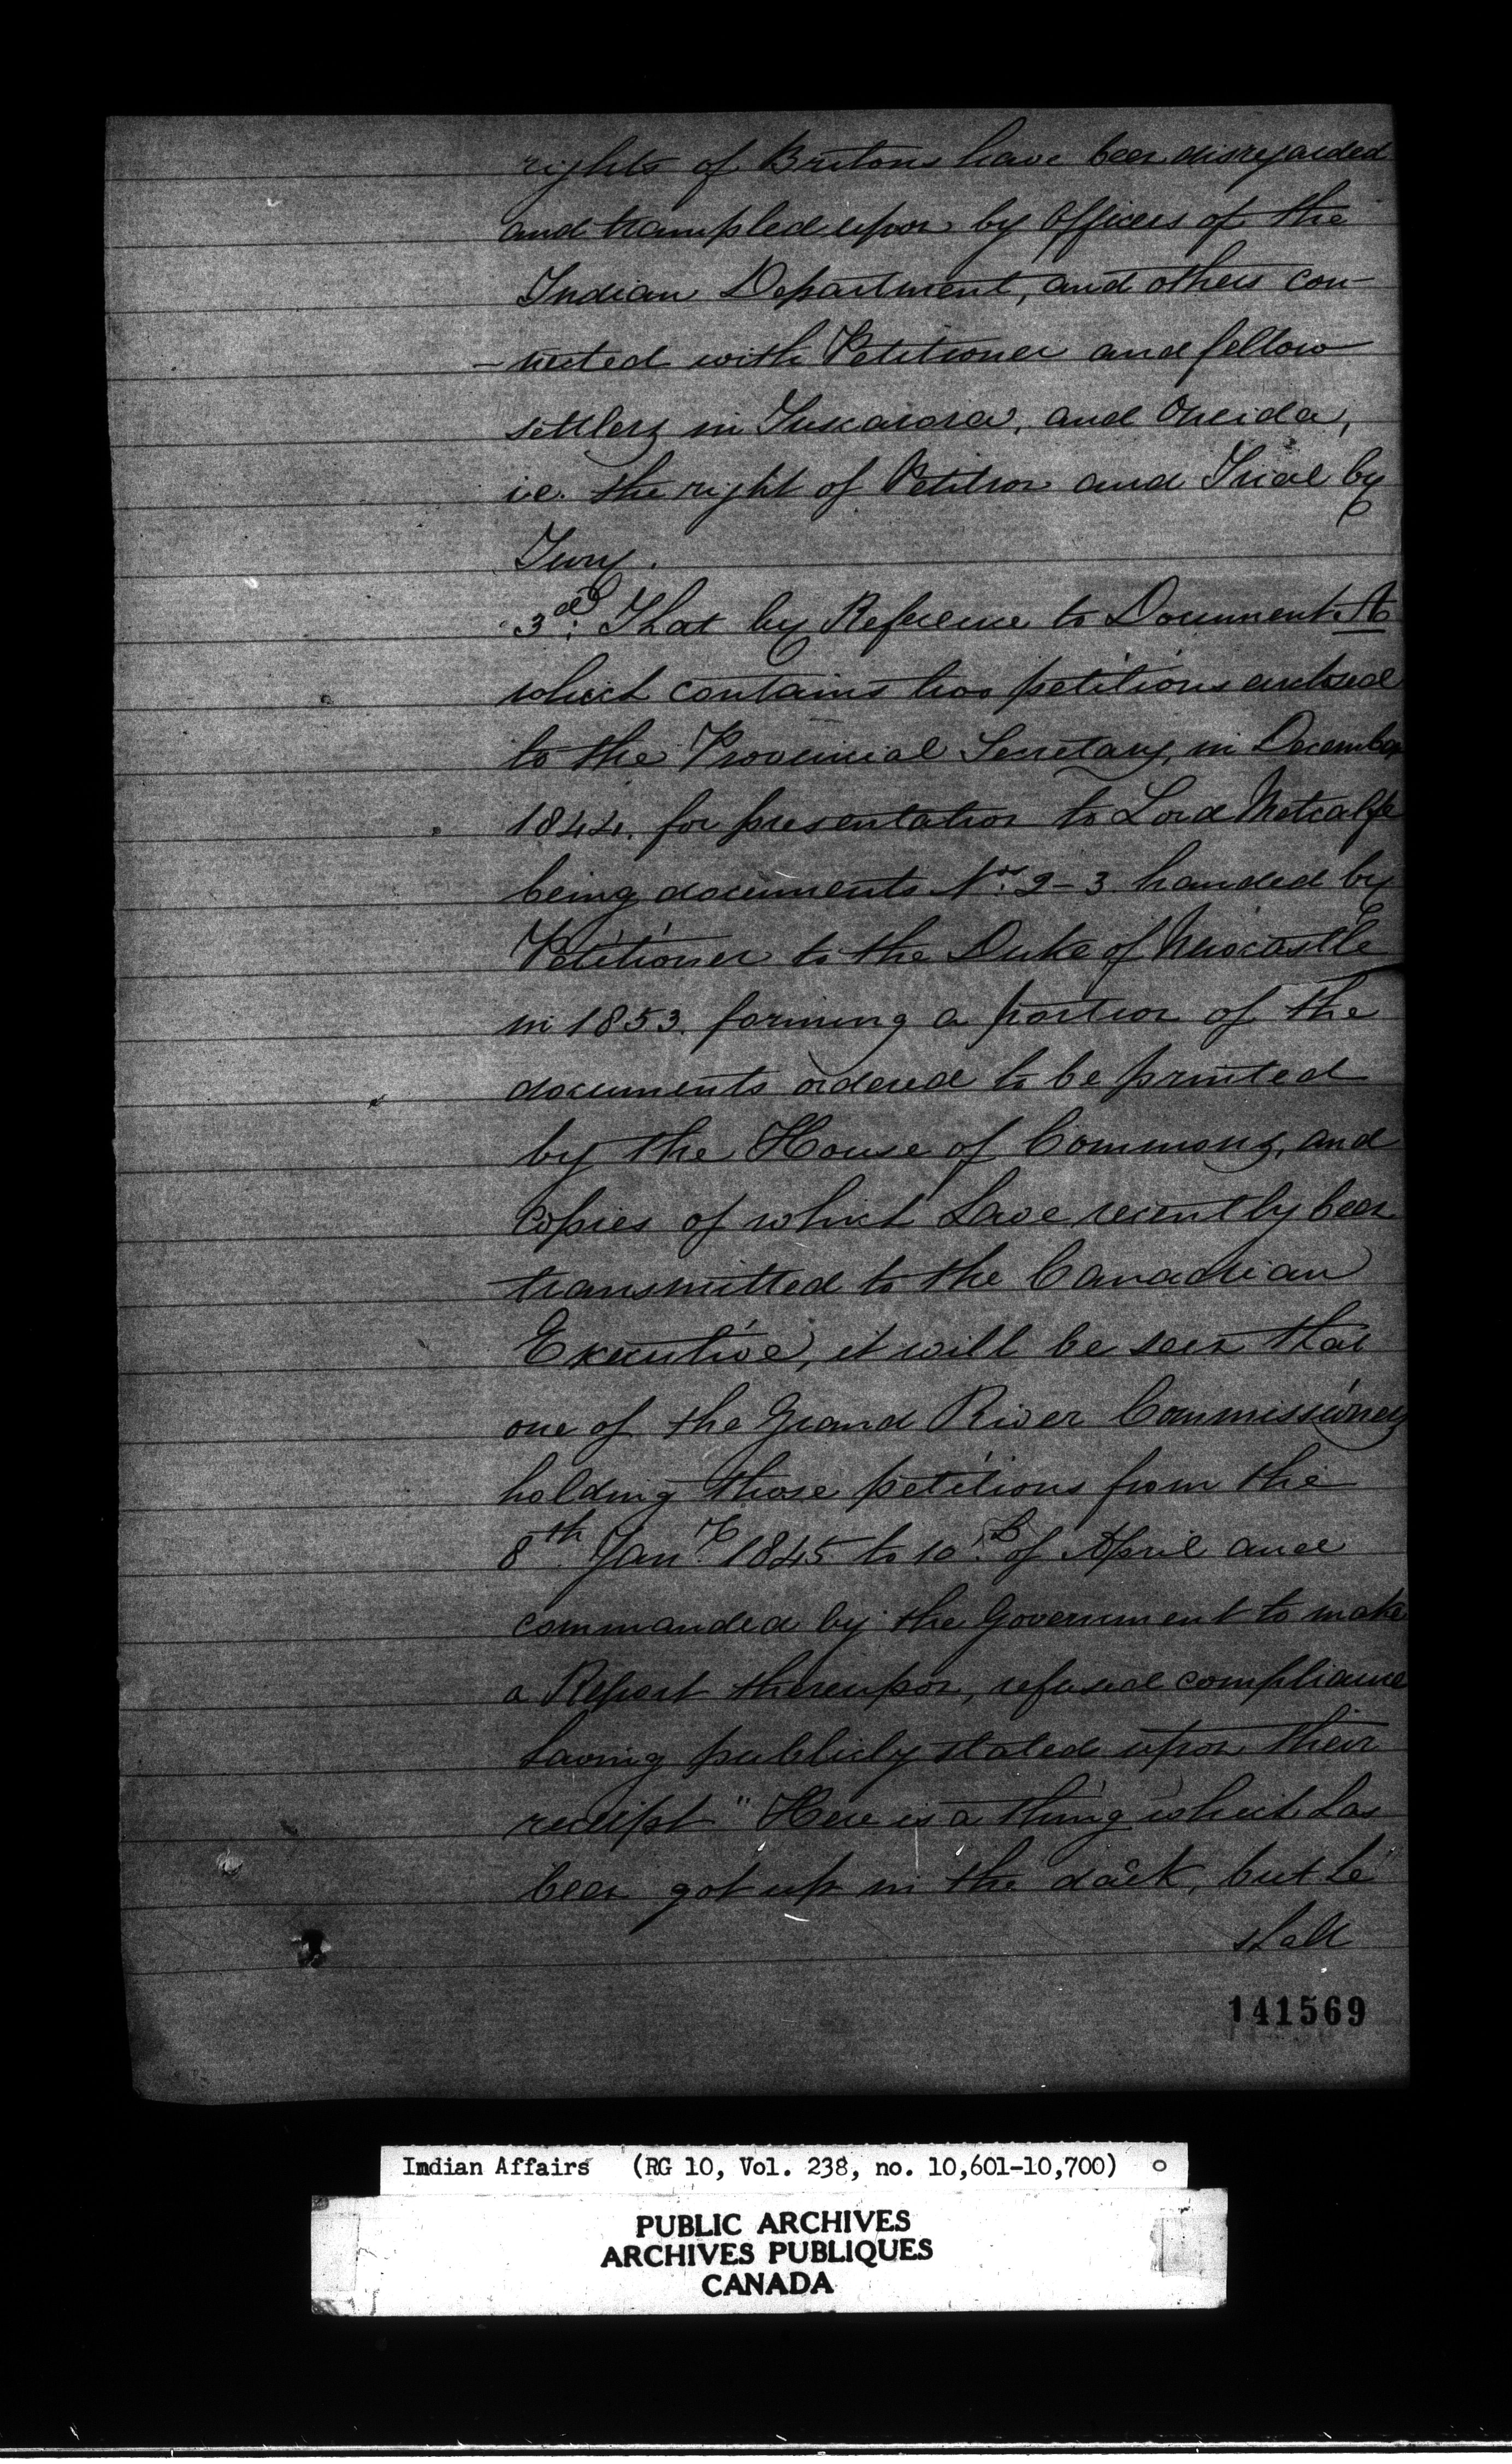 rights of Britons have been disregarded
and trampled upon by Officers of the
Indian Department, and others con-
-nected with Petitioner and fellow
settlers in Tuscarora, and Oneida,
i.e. the right of Petition and Trial by
Jury.
3d: That by Reference to Document A
which contains two petitions enclosed
to the Provincial Secretary, in December
1844. for presentation to Lord Metcalfe
being documents Nos. 2-3 handed by
Petitioner to the Duke of Newcastle
in 1853. forming a portion of the
documents ordered to be printed
by the House of Commons, and
Copies of which have recently been
transmitted to the Canadian
Executive, it will be seen that
one of the Grand River Commissioners
holding those petitions from the
8th Jany. 1845 to 10th. of April and
commanded by the Government to make
a Report thereupon, refused compliance
having publicly stated upon their
receipt "Here is a thing which has
been got up in the dark, but he
shall
141569
Indian Affairs (RG 10, Vol. 238, no. 10,601-10,700)
PUBLIC ARCHIVES
ARCHIVES PUBLIQUES
CANADA